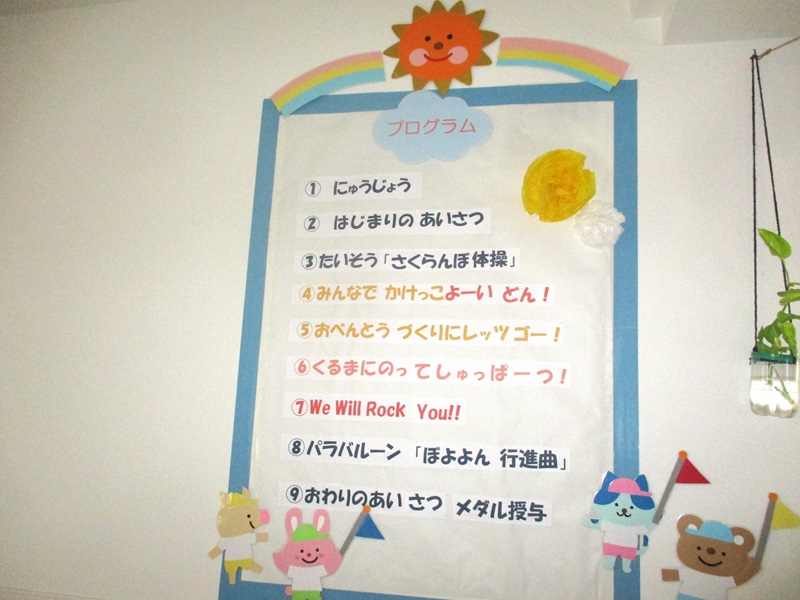 プログラム
① にゅうじょう
② はじまりの あいさつ
③たいそう「さくらんぼ体操」
④みんなで かけっこよーい どん！
⑤おべんとう づくりにレッツ ゴー！
⑥くるまにのって しゅっぱーつ！
⑦We Will Rock You!!
⑧パラバルーン 「ぽよよん 行進曲」
⑨おわりのあいさつ メダル授与